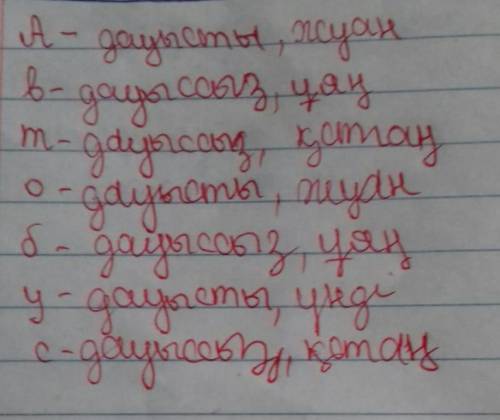 А - дауысты, жуан
в - дауыссыз, ұяң
т - дауыссыз, қатаң
о - дауысты, жуан
б - дауыссыз, ұяң
у - дауысты, үнді
с - дауыссыз, қатаң